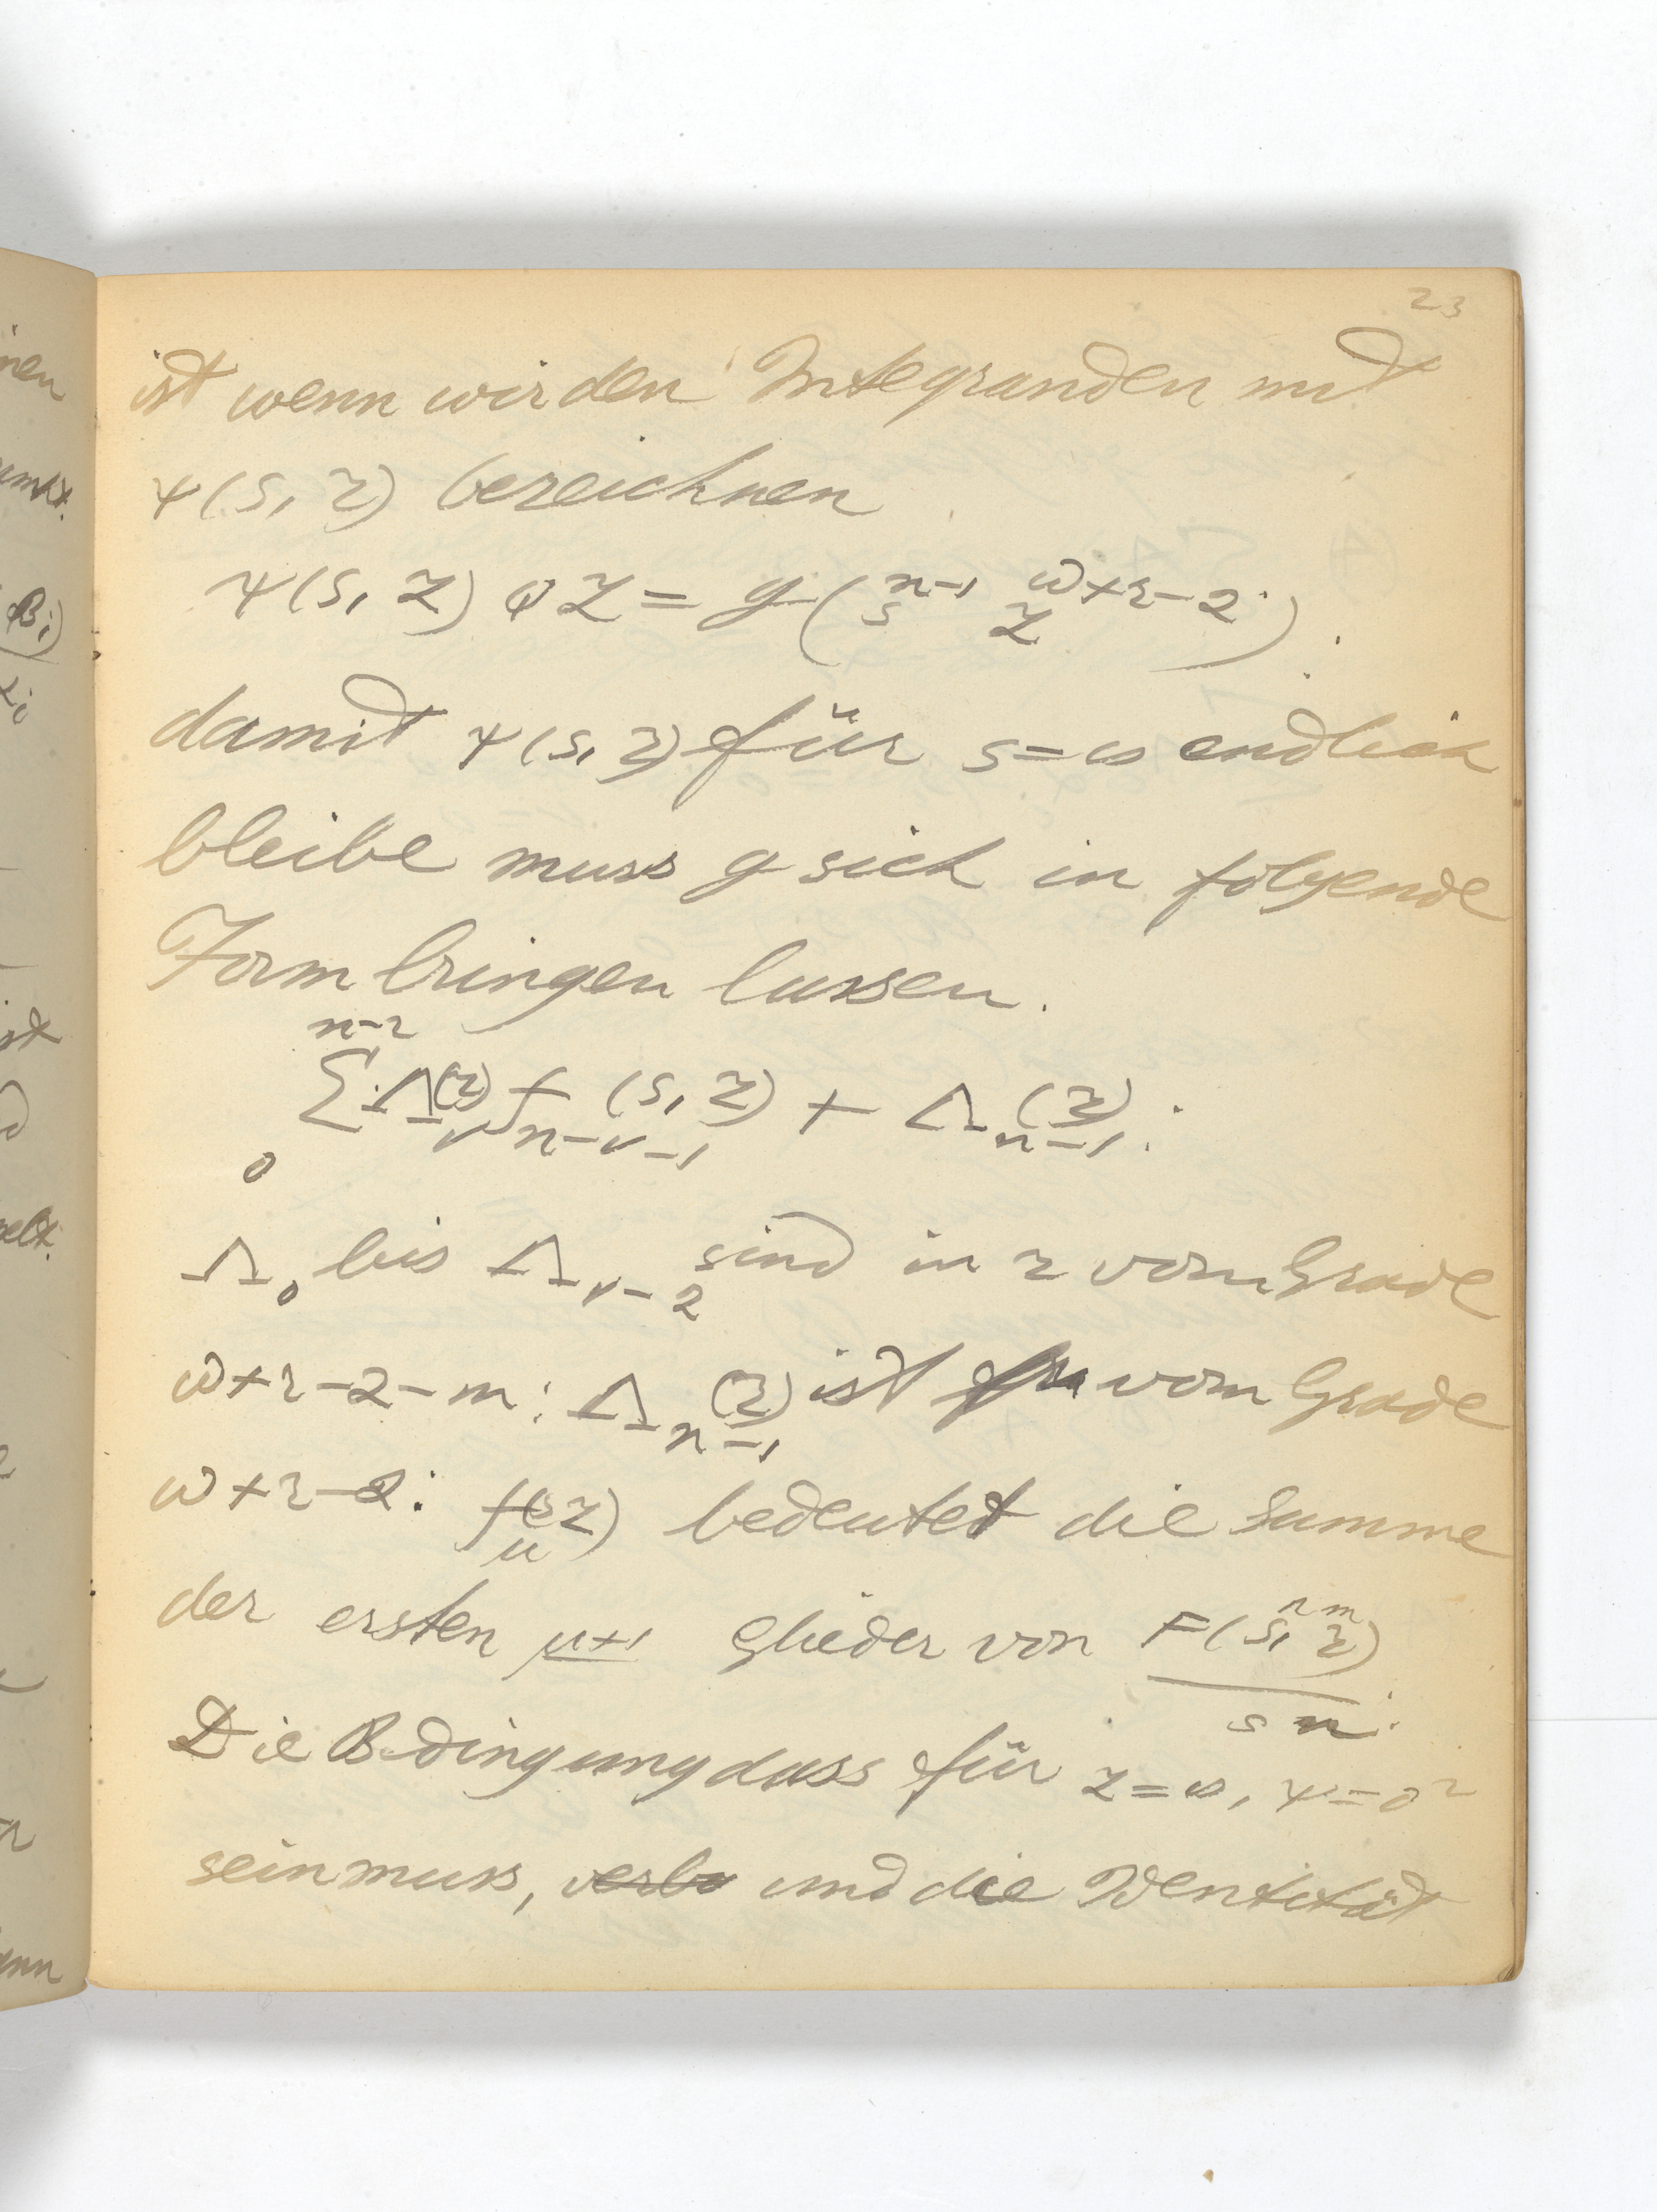 23
ist wenn wir den Integranden mit
ψ(s, z) bezeichnen
ψ(s, z) φ z = g(s^{n-1} z^{w+r-2}).
damit ψ(s, z) für s=∞ endlich
bleibe muss g sich in folgende
Form bringen lassen.
n-2
∑ Λ_ν(z) f_{n-ν-1}(s, z) + Λ_{n-1}(z).
0
Λ_0 bis Λ_{ν-2} sind in z vom Grade
w+r-2-m: Λ_{n-1}(z) ist vom Grade
w+r-2: f_μ(s z) bedeutet die Summe
der ersten μ+1 Glieder von F(s^n, z^m)
s^n.
Die Bedingung dass für z=∞, ψ=0^2
sein muss, und die Identität